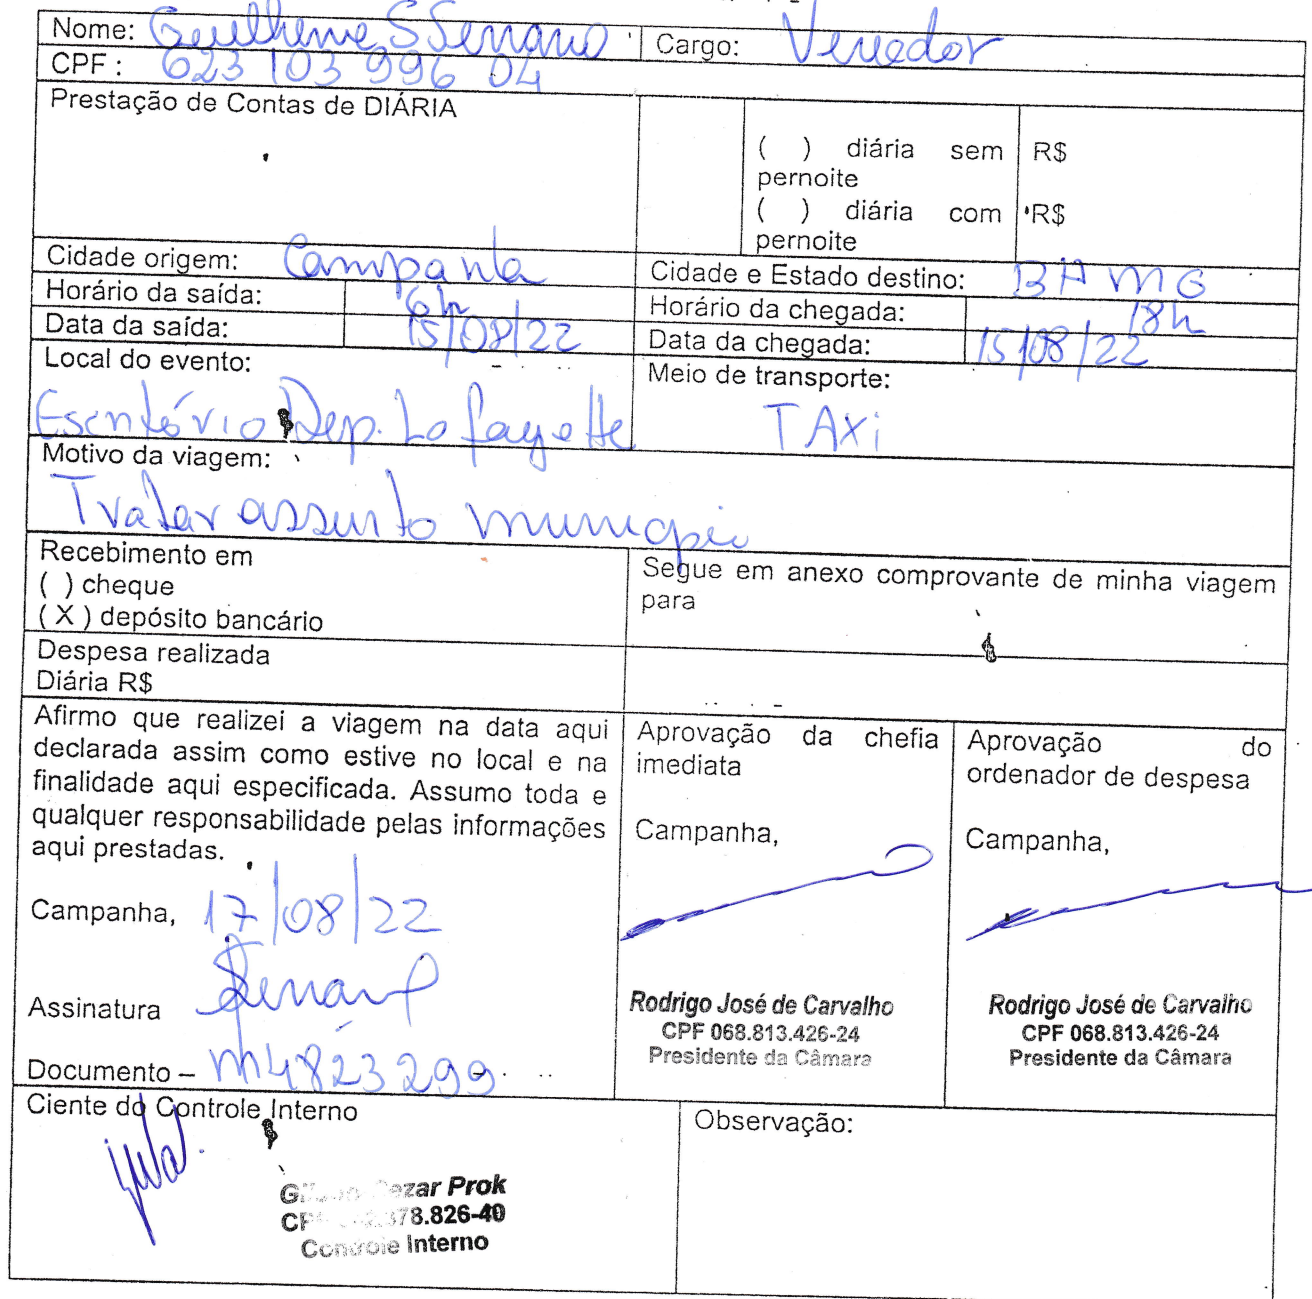 Nome: Guilherme S Senario Cargo: Vereador
CPF : 623 103 996 04
Prestação de Contas de DIÁRIA
( ) diária sem pernoite R$
( ) diária com pernoite R$
Cidade origem: Campanha Cidade e Estado destino: BH MG
Horário da saída: 6h Horário da chegada: 18h
Data da saída: 15/08/22 Data da chegada: 15/08/22
Local do evento: Meio de transporte:
Escritório Dep. Lafayette TAXi
Motivo da viagem:
Tratar assunto municipio
Recebimento em
( ) cheque
( X ) depósito bancário
Segue em anexo comprovante de minha viagem
para
Despesa realizada
Diária R$
Afirmo que realizei a viagem na data aqui
declarada assim como estive no local e na
finalidade aqui especificada. Assumo toda e
qualquer responsabilidade pelas informações
aqui prestadas.
Campanha, 17/08/22
Assinatura
Documento – M4823299
Aprovação da chefia
imediata
Campanha,
Rodrigo José de Carvalho
CPF 068.813.426-24
Presidente da Câmara
Aprovação do
ordenador de despesa
Campanha,
Rodrigo José de Carvalho
CPF 068.813.426-24
Presidente da Câmara
Ciente do Controle Interno
Prok
CPF 378.826-40
Controle Interno
Observação: